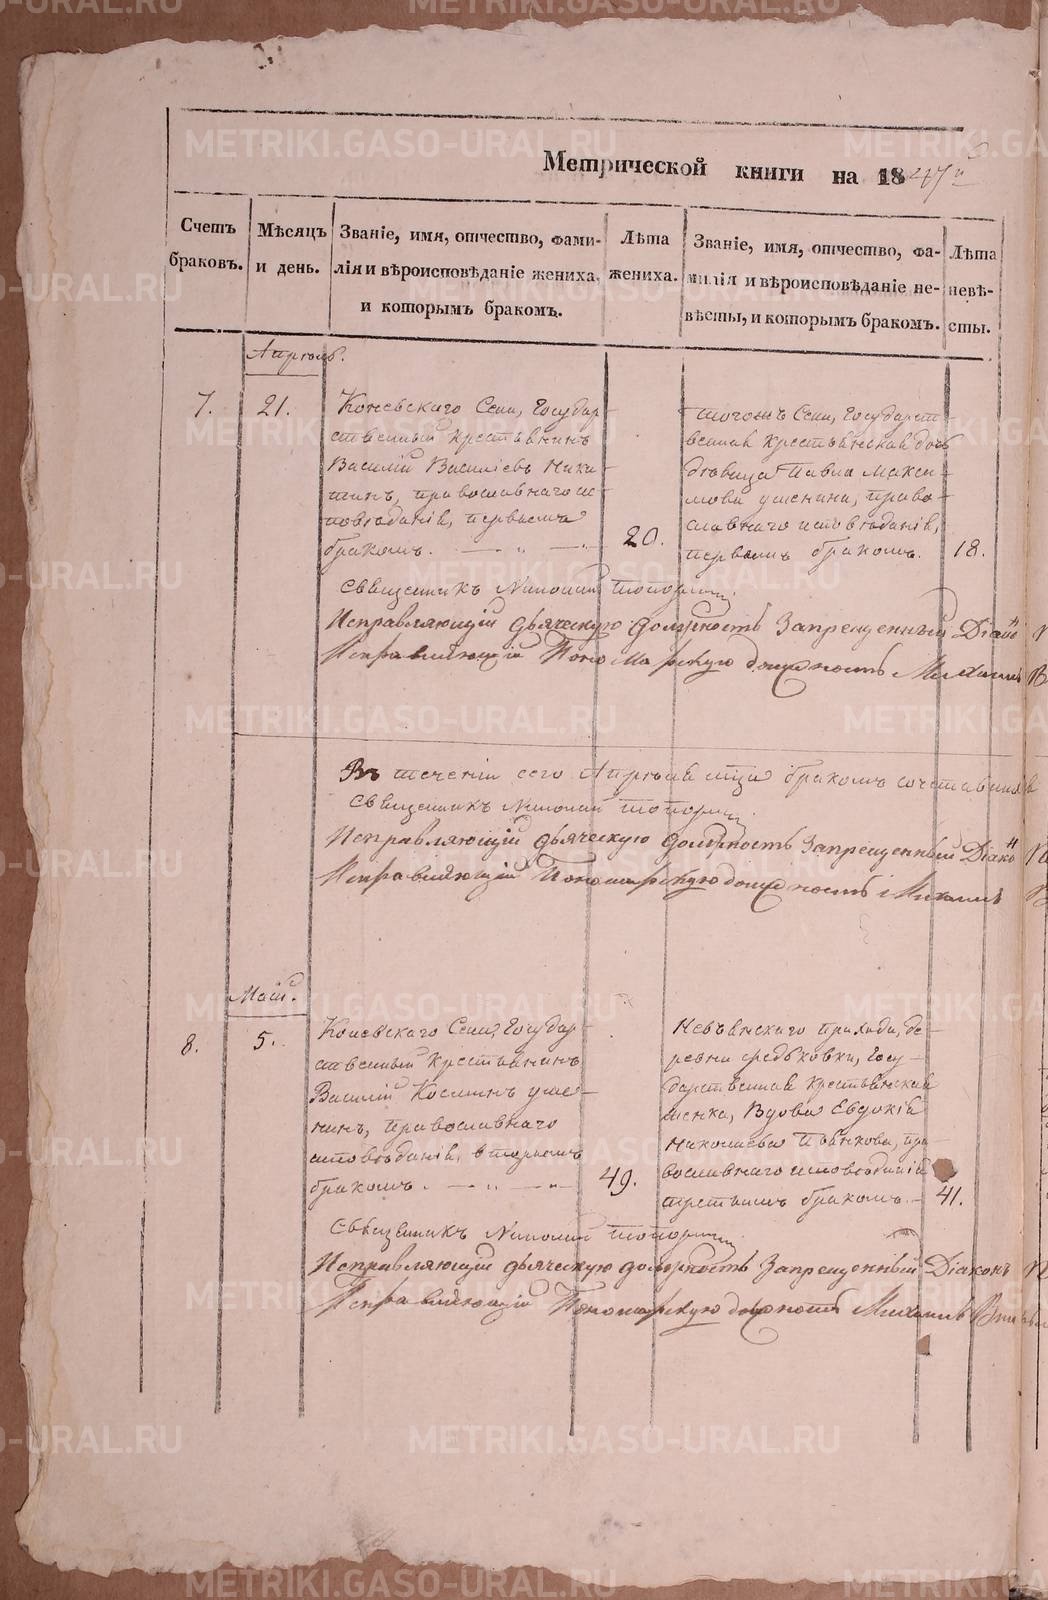 Метрической книги на 1847й
Счетъ браковъ.
Мѣсяцъ и день.
Званіе, имя, отчество, фами-
лія и вѣроисповѣданіе жениха,
и которымъ бракомъ.
Лѣта жениха.
Званіе, имя, отчество, фа-
милія и вѣроисповѣданіе не-
вѣсты, и которымъ бракомъ.
Лѣта невѣ-
сты.
Апрѣль.
7.
21.
Коневскаго Села, Государ-
ственный крестьянинъ
Василій Василіевъ Ники-
тинъ, православнаго ис-
повѣданія, первымъ
бракомъ. — „ —
20.
тогожъ Села, Государст-
венная крестьянская дочь
дѣвица Павла Макси-
мова Ушенина, право-
славнаго исповѣданія,
первымъ бракомъ.
18.
Священникъ Николай Топорин
Исправляющій дьяческую должность Запрещенный Діакон
Исправляющій Пономарскую должность Михаилъ В
В теченіи сего Апрѣля мца бракомъ сочетавши
Священникъ Николай Топорин
Исправляющій дьяческую должность Запрещенный Діакон
Исправляющій Пономарскую должность Михаилъ
Май.
8.
5.
Коневскаго Села, Государ-
ственный крестьянинъ
Василій Косминъ Уше-
нинъ, православнаго
исповѣданія, вторымъ
бракомъ. — „ —
49.
Невьянскаго прихода, де-
ревни Федьковки, Госу-
дарственная крестьянская
женка, Вдова Евдокія
Николаева Пьянкова, пра-
вославнаго исповѣданія
третьимъ бракомъ. —
41.
Священникъ Николай Топорин
Исправляющій дьяческую должность Запрещенный Діаконъ
Исправляющій Пономарскую должность Михаилъ
METRIKI.GASO-URAL.RU